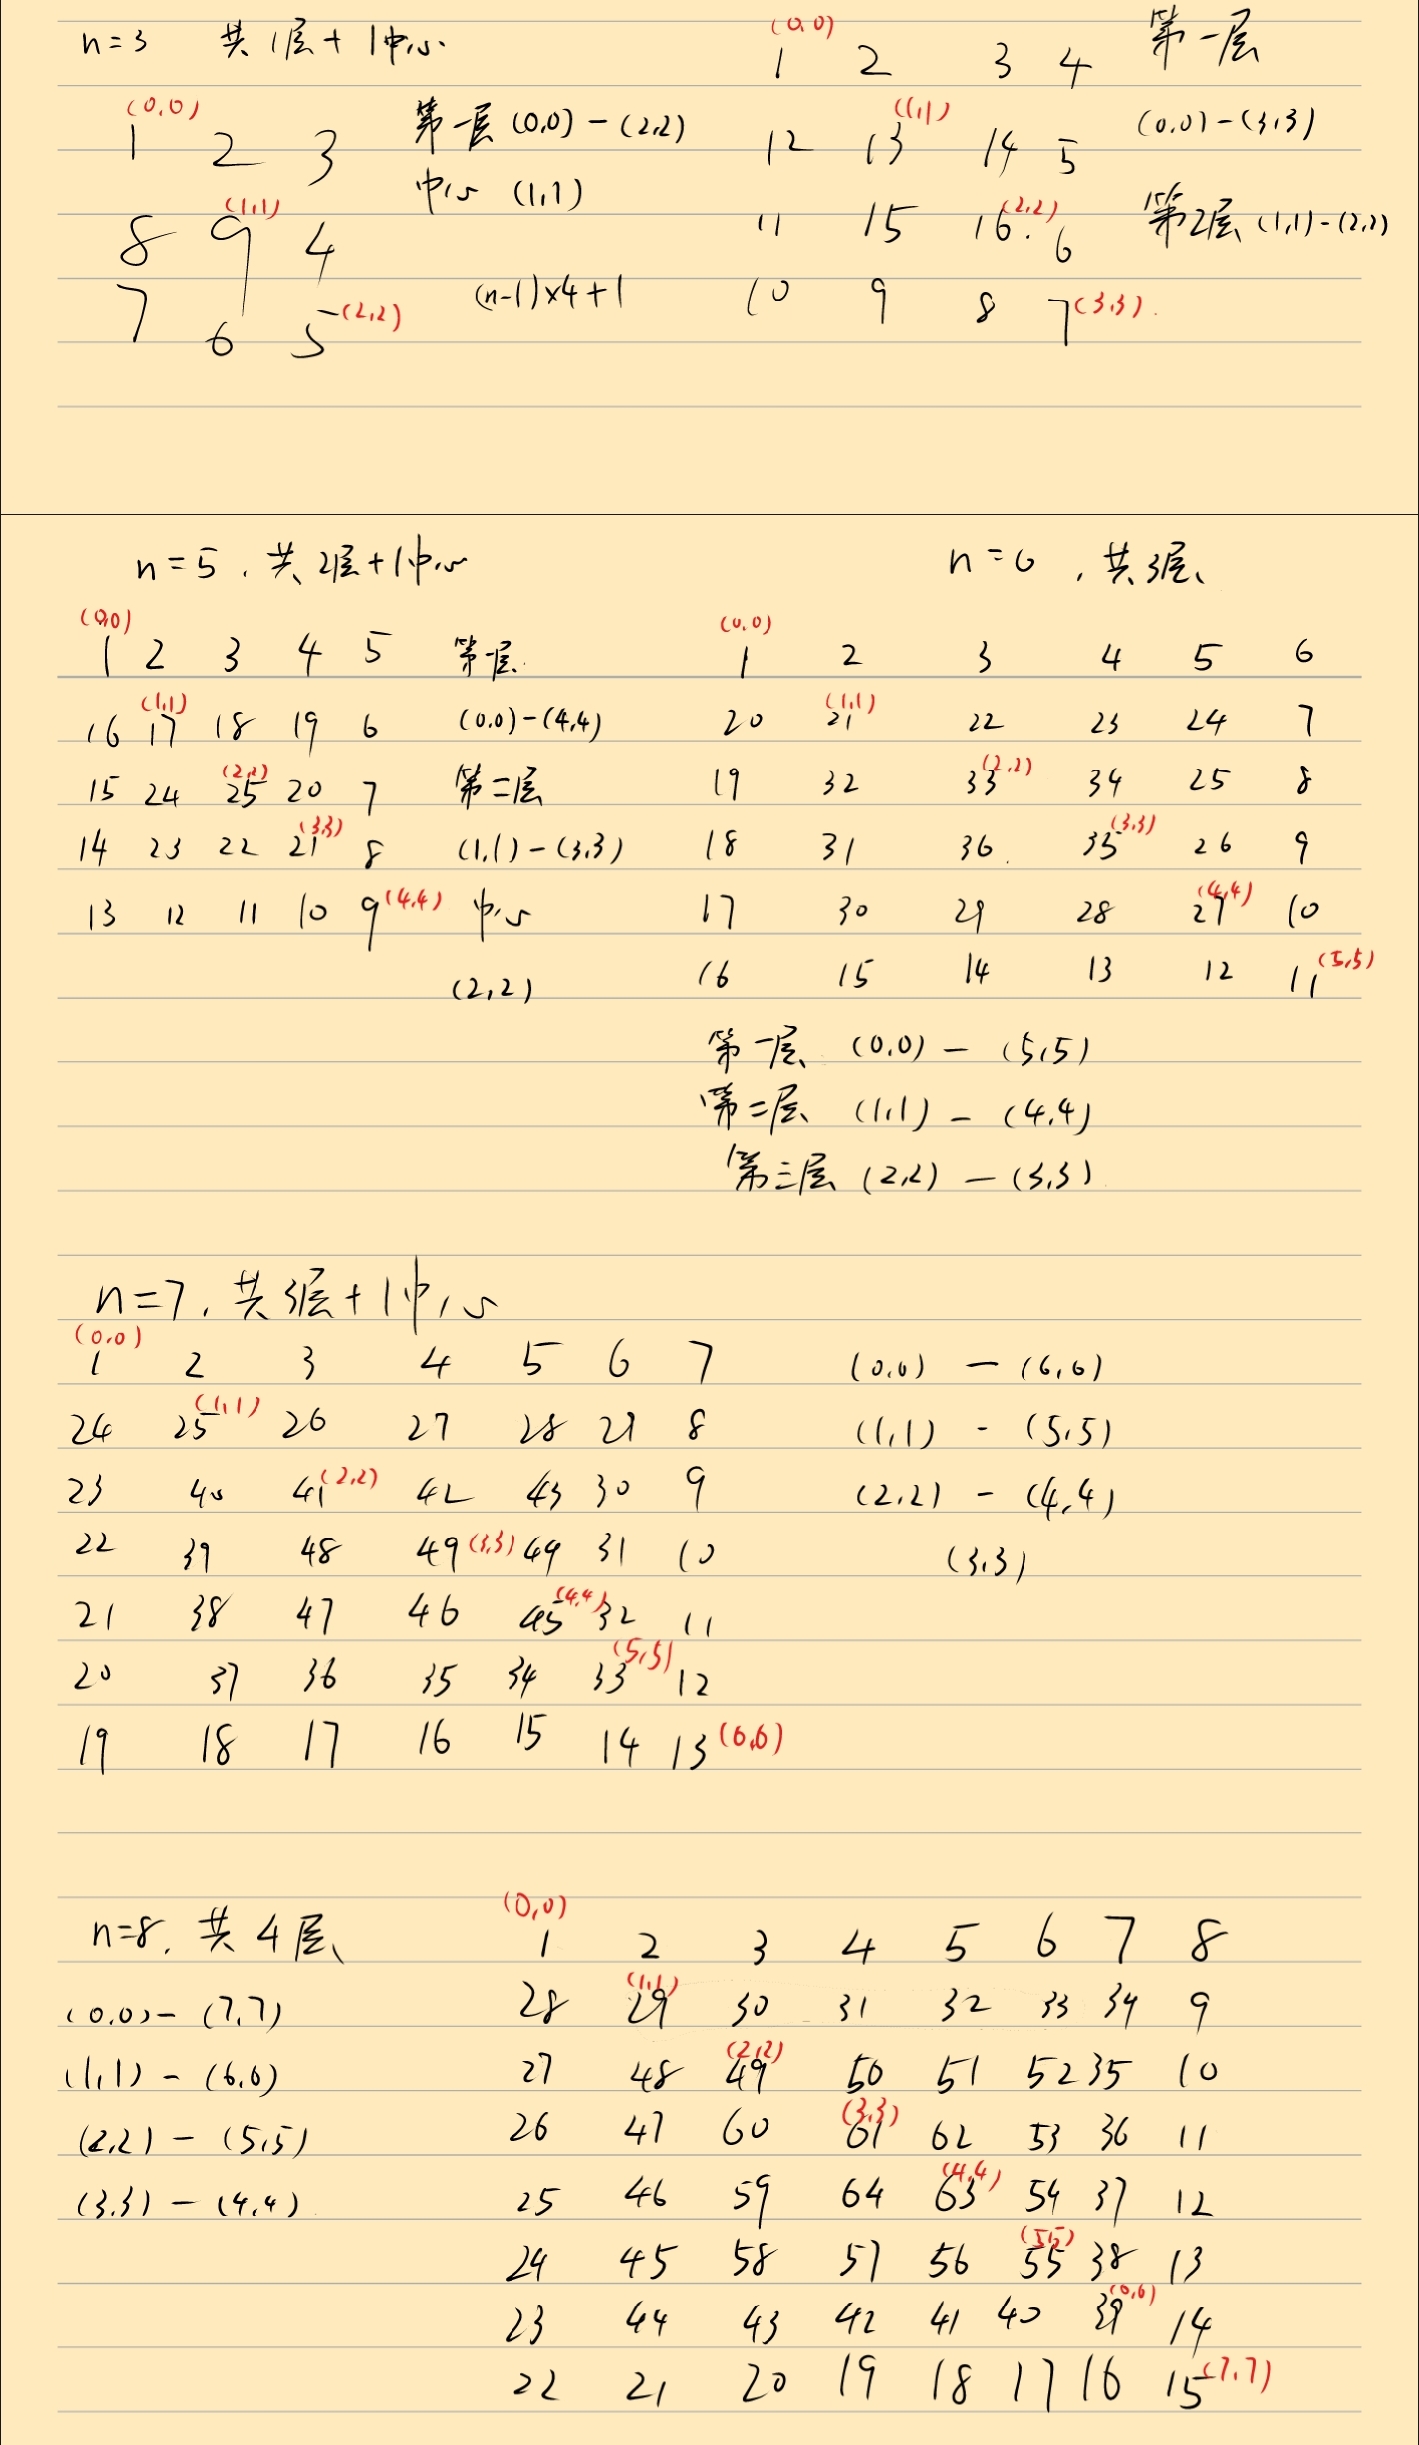 n=3 共1层+1中心
(0,0)
1 2 3
8 9(1,1) 4
7 6 5(2,2)
第一层(0,0)-(2,2)
中心 (1,1)
(n-1)×4+1
(0,0)
1 2 3 4
12 13(1,1) 14 5
11 15 16.(2,2) 6
10 9 8 7(3,3).
第一层
(0,0)-(3,3)
第2层(1,1)-(2,2)
n=5.共2层+1中心
(0,0)
1 2 3 4 5
16 17(1,1) 18 19 6
15 24 25(2,2) 20 7
14 23 22 21(3,3) 8
13 12 11 10 9(4,4)
第一层.
(0,0)-(4,4)
第二层
(1,1)-(3,3)
中心
(2,2)
n=6,共3层
(0,0)
1 2 3 4 5 6
20 21(1,1) 22 23 24 7
19 32 33(2,2) 34 25 8
18 31 36. 35(3,3) 26 9
17 30 29 28 27(4,4) 10
16 15 14 13 12 11(5,5)
第一层 (0,0)-(5,5)
第二层 (1,1)-(4,4)
第三层 (2,2)-(3,3)
n=7.共3层+1中心
(0,0)
1 2 3 4 5 6 7
24 25(1,1) 26 27 28 29 8
23 40 41(2,2) 42 43 30 9
22 39 48 49(3,3) 49 31 10
21 38 47 46 45(4,4) 32 11
20 37 36 35 34 33(5,5) 12
19 18 17 16 15 14 13(6,6)
(0,0)-(6,6)
(1,1)-(5,5)
(2,2)-(4,4)
(3,3)
n=8.共4层
(0,0)-(7,7)
(1,1)-(6,6)
(2,2)-(5,5)
(3,3)-(4,4)
(0,0)
1 2 3 4 5 6 7 8
28 29(1,1) 30 31 32 33 34 9
27 48 49(2,2) 50 51 52 35 10
26 47 60 61(3,3) 62 53 36 11
25 46 59 64 63(4,4) 54 37 12
24 45 58 57 56 55(5,5) 38 13
23 44 43 42 41 40 39(6,6) 14
22 21 20 19 18 17 16 15(7,7)